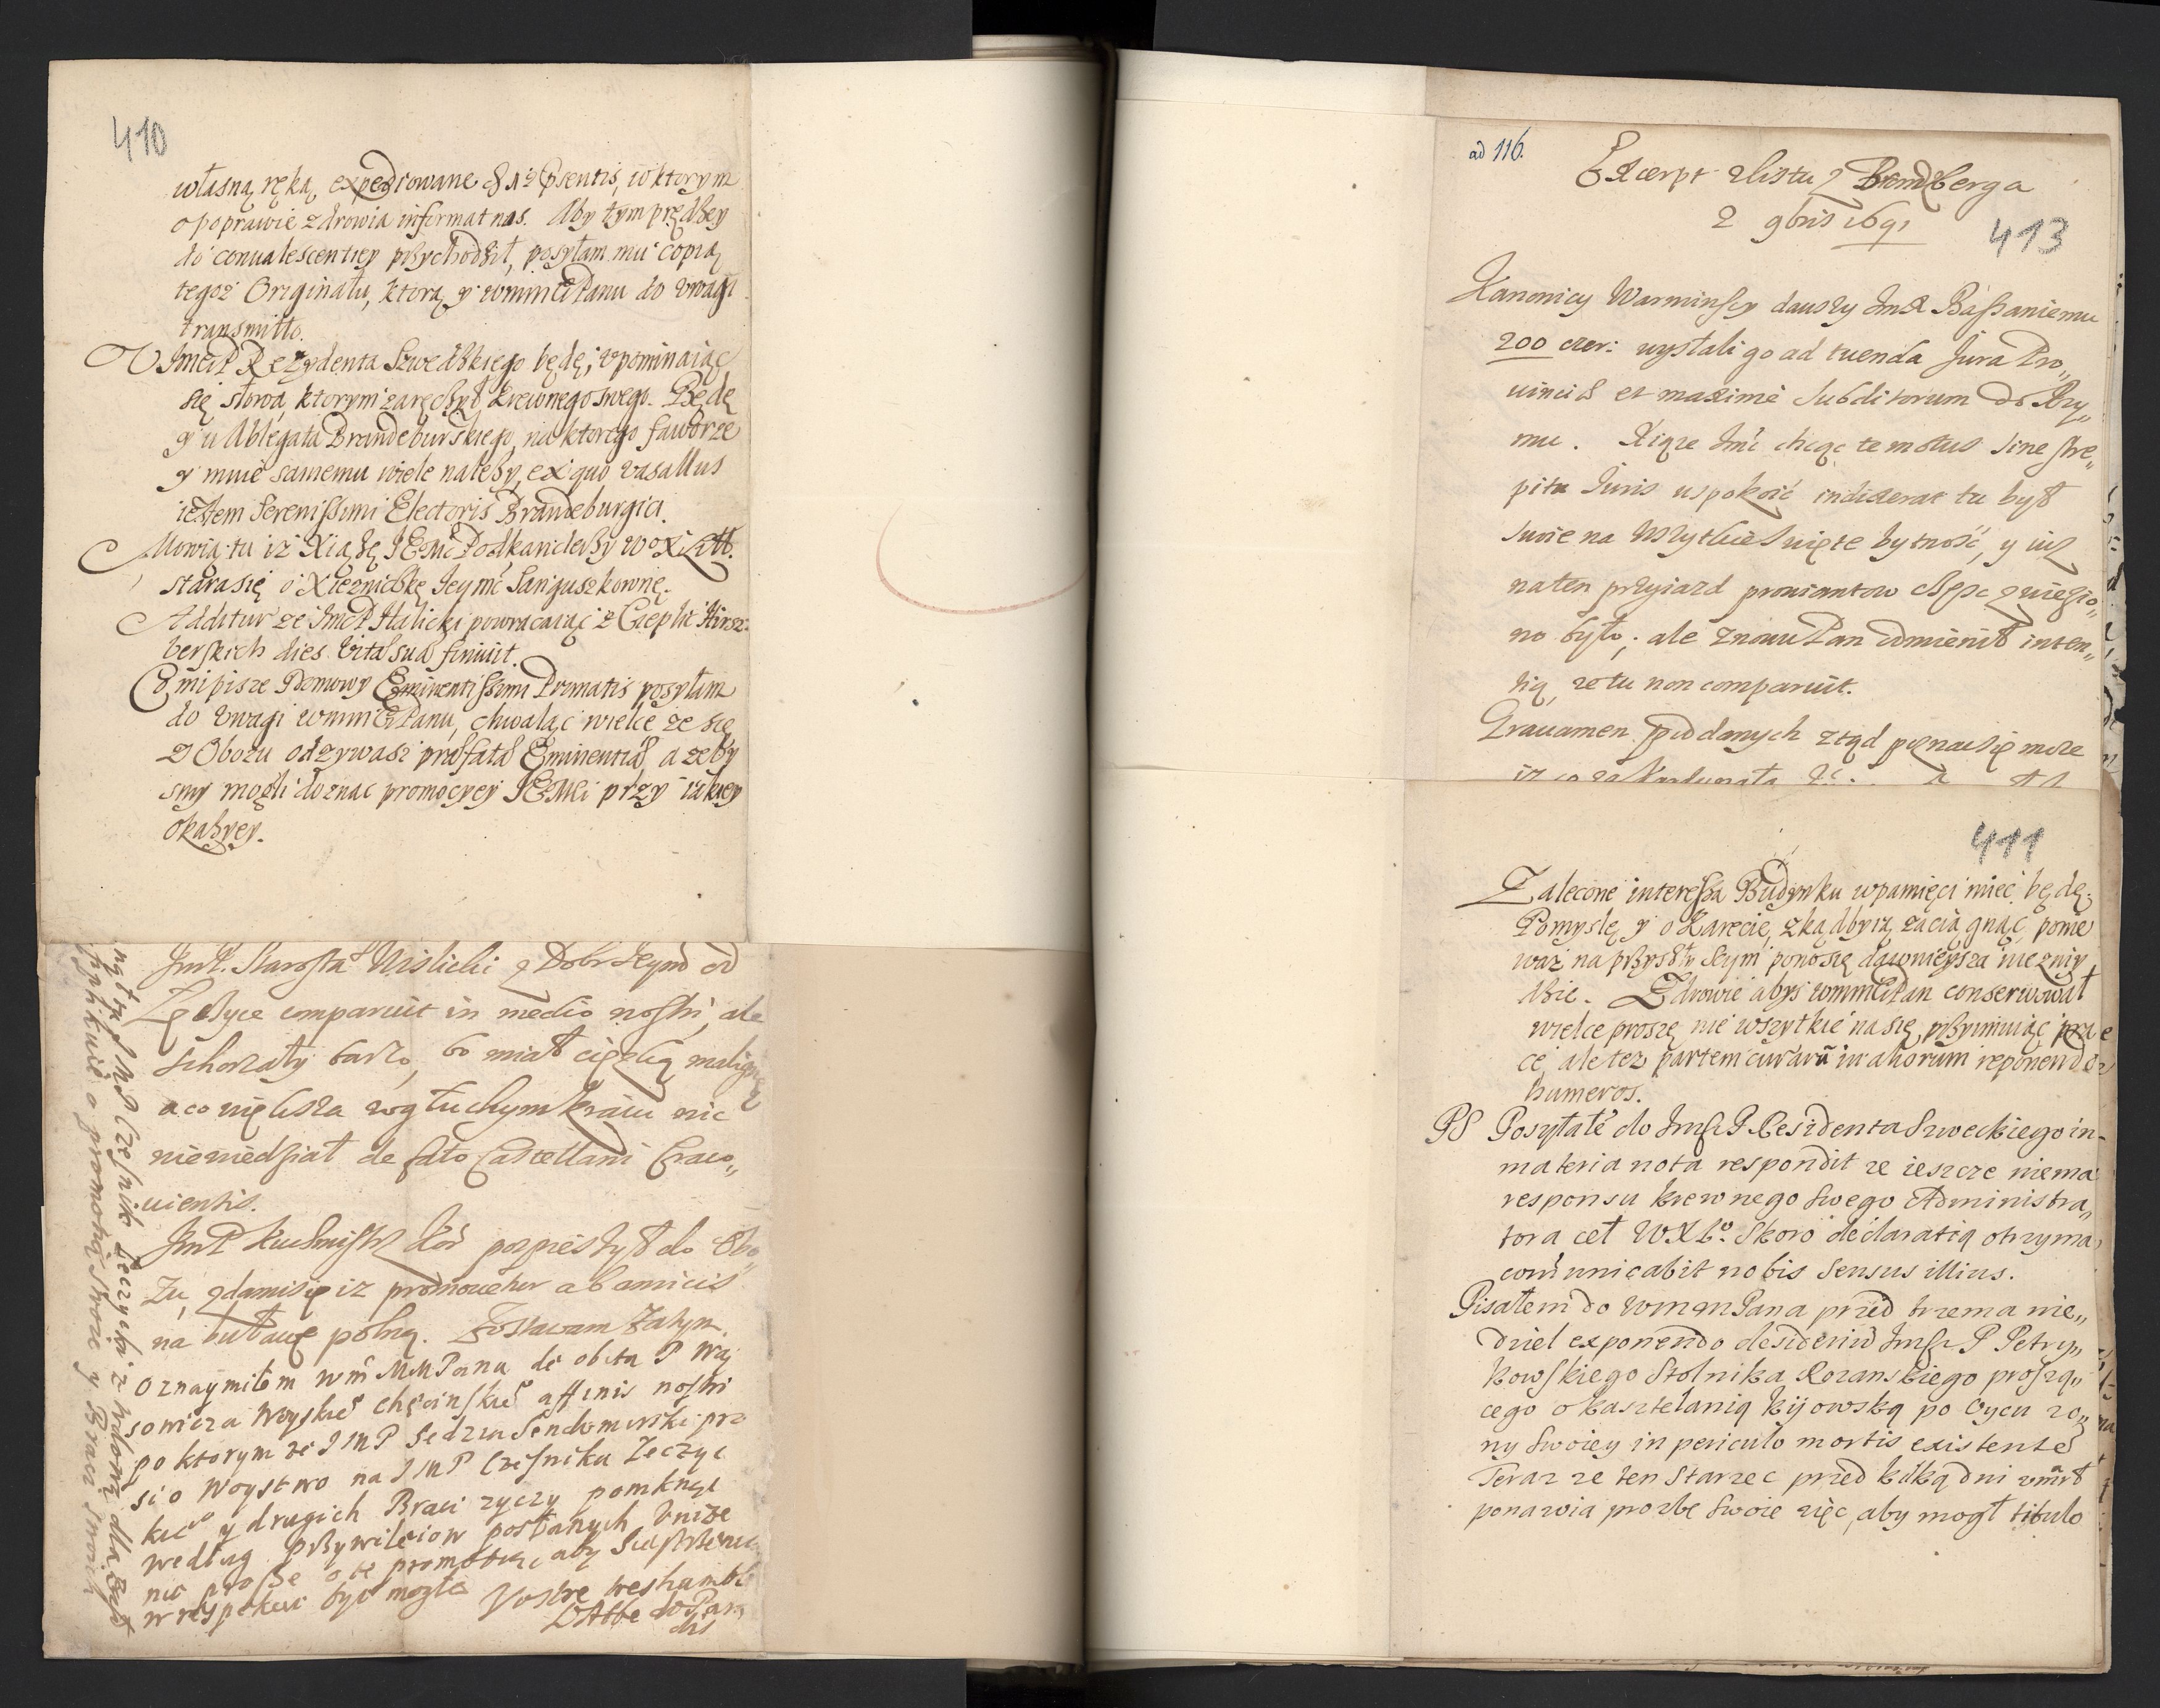 410
własną ręką expediowane 8 Xbr psentis, w ktorym
o poprawie zdrowia informat nas. Aby tym prędzey
do conualescentiey przychodził, posyłam mu copią
tegoż Originału, ktorą y wmmCiPanu do vwagi
transmitto.
V JmciP Rezydenta Szwedzkiego będę, vpominaiąc
się słowa, ktorym zaręczył krewnego swego. Będę
y u Ablegata Brandeburskiego, na ktorego faworze
y mnie samemu wiele należy, ex quo vasallus
iestem Serenissimi Electoris Brandeburgici.
Mowią tu iż Xiążę JEMć Podkanclerzy WoXLitt.
stara się o Xiezniczkę Jeymć Sanguszkownę.
Additur ze JmćP Halicki powracaiąc z Cieplic Hirsz-
berskich dies vitæ suæ finiuit.
Co mi pisze Domowy Eminentissimi Primatis, posyłam
do vwagi wmmCiPanu, chwaląc wielce że się
z Obozu odzywasz præfatæ Eminentiæ, a żeby
smy mogli doznac promocyey JEMCi przy iakiey
okazyey.
JmP. Starosta Wislicki z Dobr Jeymći od
Łęczyce comparuit in medio nostri, ale
schorzały barzo, bo miał cięzką malignę
a co większa w głuchym kraiu nic
niewiedział de fato Castellani Craco„
uiensis.
JmP Kuchmistrz Kor pospieszył do Obo„
zu, zda mi się iz promouetur ab amicis
na buławę polną. Zostawam zatym.
Oznaymiłem wm MMPanu de obitu P Wą
sowicza Woyskie° chęcinskie° affinis nostri
po ktorym ze JMP Sedzia Sendomirski pro
si o Woystwo na JMP Czesnika Łeczyc
kie° y drugich Braci zyczy pomknąc
według przywileiow posłanych. Vnize
nie prosze o te promotią aby Suplikuiące
w respekcie być mogła Vostre tres humble
L'Abbe de Par
dis
ad 116.
Excerpt z listu z Hemdzberga
2 9bris 1691
413
Kanonicy Warminscy dawszy JmX Bassaniemu
200 czer: wysłali go ad tuenda Jura Pro„
uinciæ et maximè Subditorum do Rzy„
mu. Xiąze Jmć chcąc te motus sine stre„
pitu Juris uspokoić indixerat tu był
swoie na Wszytkie Swięte bytność, y iuz
na ten przyiazd prowiantow chcąc zwiezio„
no było; ale znowu Pan odmienił inten„
tią, ze tu non comparuit.
Grauamen poddanych ztąd poznać się może
411
Zalecone interessa Budynku w pamięci mieć będę.
Pomyslę y o Karecie, zkądby ią zaciągnąć, ponie
waż na przyszły Seym ponosię dawnieysza nie zniy
dzie. Zdrowie abyś wmmCiPan conserwował
wielce proszę, nie wszytkie na się przyimuiąc pra
ce, ale tez partem curarū in aliorum reponendo
humeros.
PS Posyłałē do Jmści P Residenta Szweckiego in
materia nota respondit ze ieszcze niema
responsu krewnego swego Administra„
tora ceł WXL°. Skoro declaratią otrzyma
com̄unicabit nobis sensus illius.
Pisałem do WmmPana przed trzema nie„
dziel exponendo desideriū Jmści P Petry„
kowskiego Stolnika Rozanskiego proszą„
cego o kasztelanią kijowską po oycu zo„
ny swoiey in periculo mortis existente
Teraz ze ten starzec przed kilką dni vmarł
ponawia prozbe swoie więc, aby mogł titulo